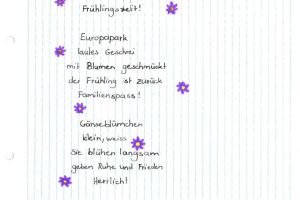 Frühlingszeit!
Europapark
lautes Geschrei
mit Blumen geschmückt
der Frühling ist zurück
Familienspass!
Gänseblümchen
klein, weiss
Sie blühen langsam
geben Ruhe und Frieden
Herrlich!